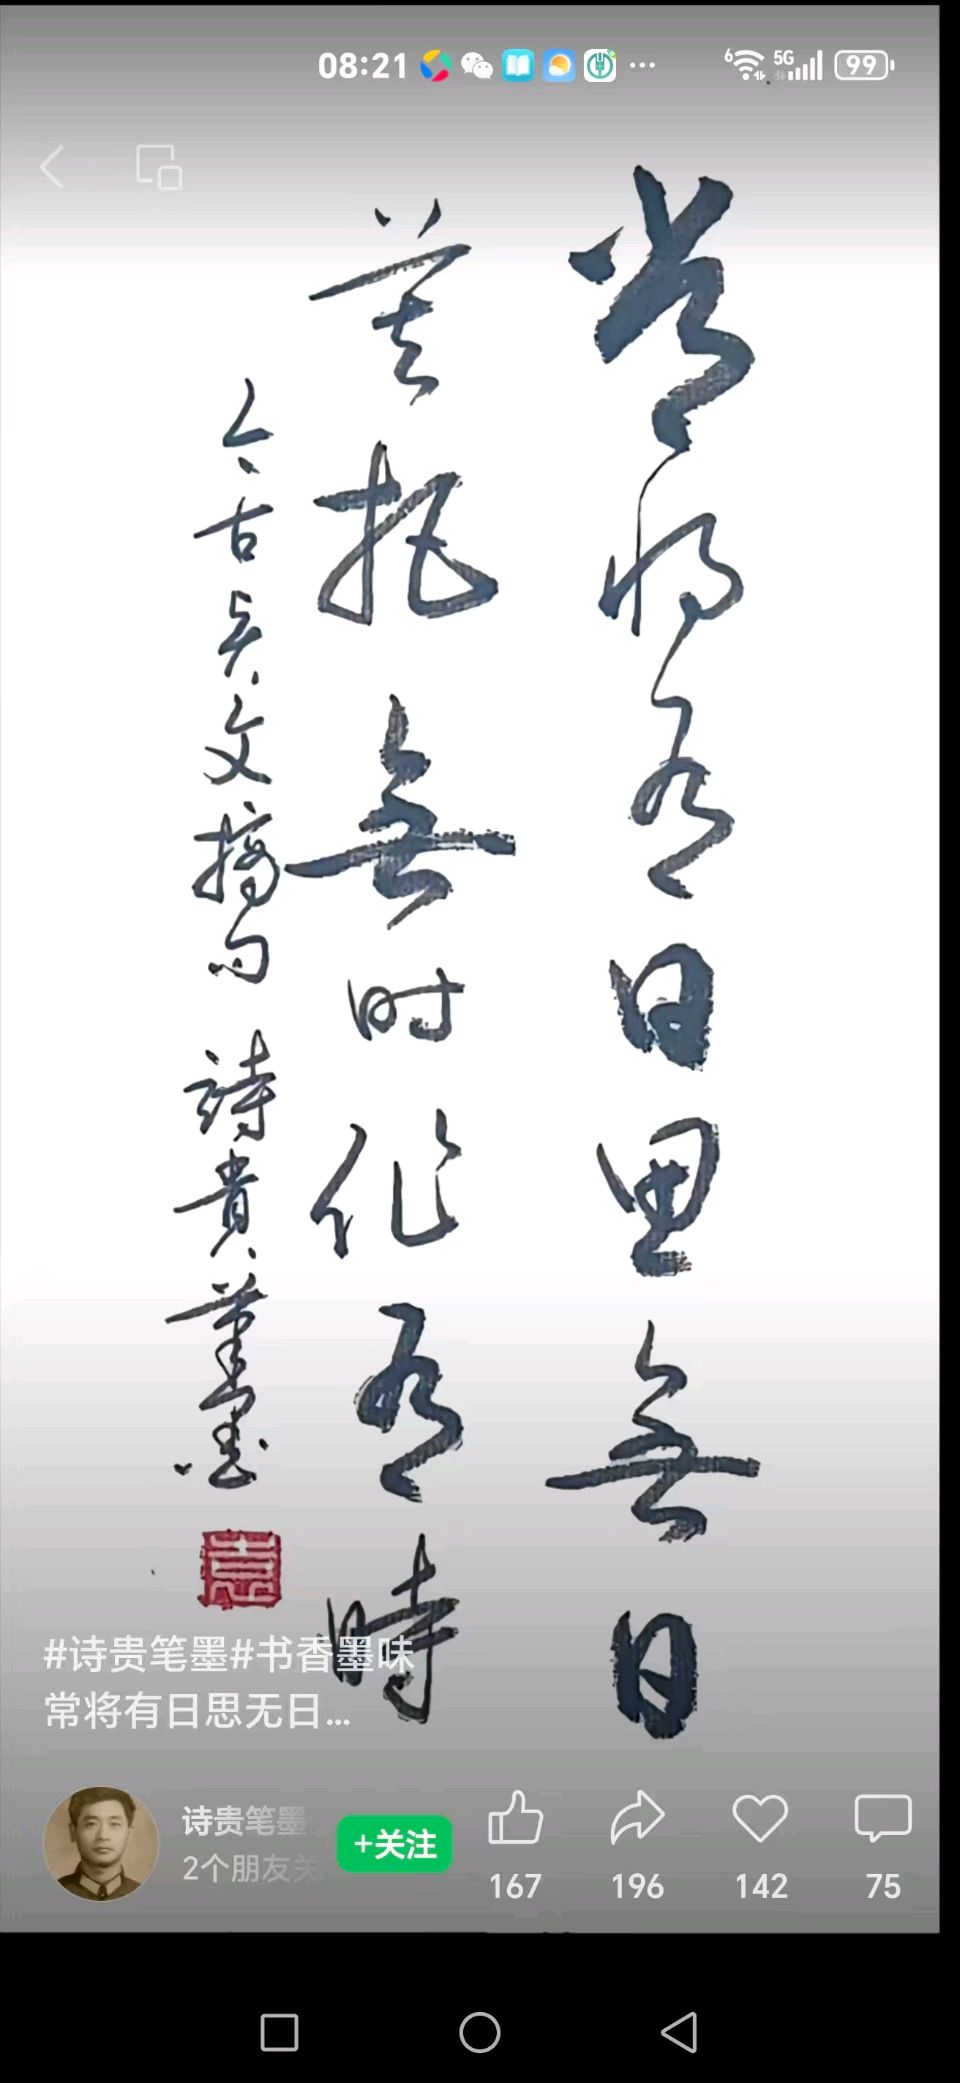 08:21
6
5G
99
常将有日思無日
莫把無时作有時
今古贤文摘句 詩貴筆墨
#诗贵笔墨#书香墨味
常将有日思无日...
诗贵笔墨
2个朋友关
+关注
167
196
142
75